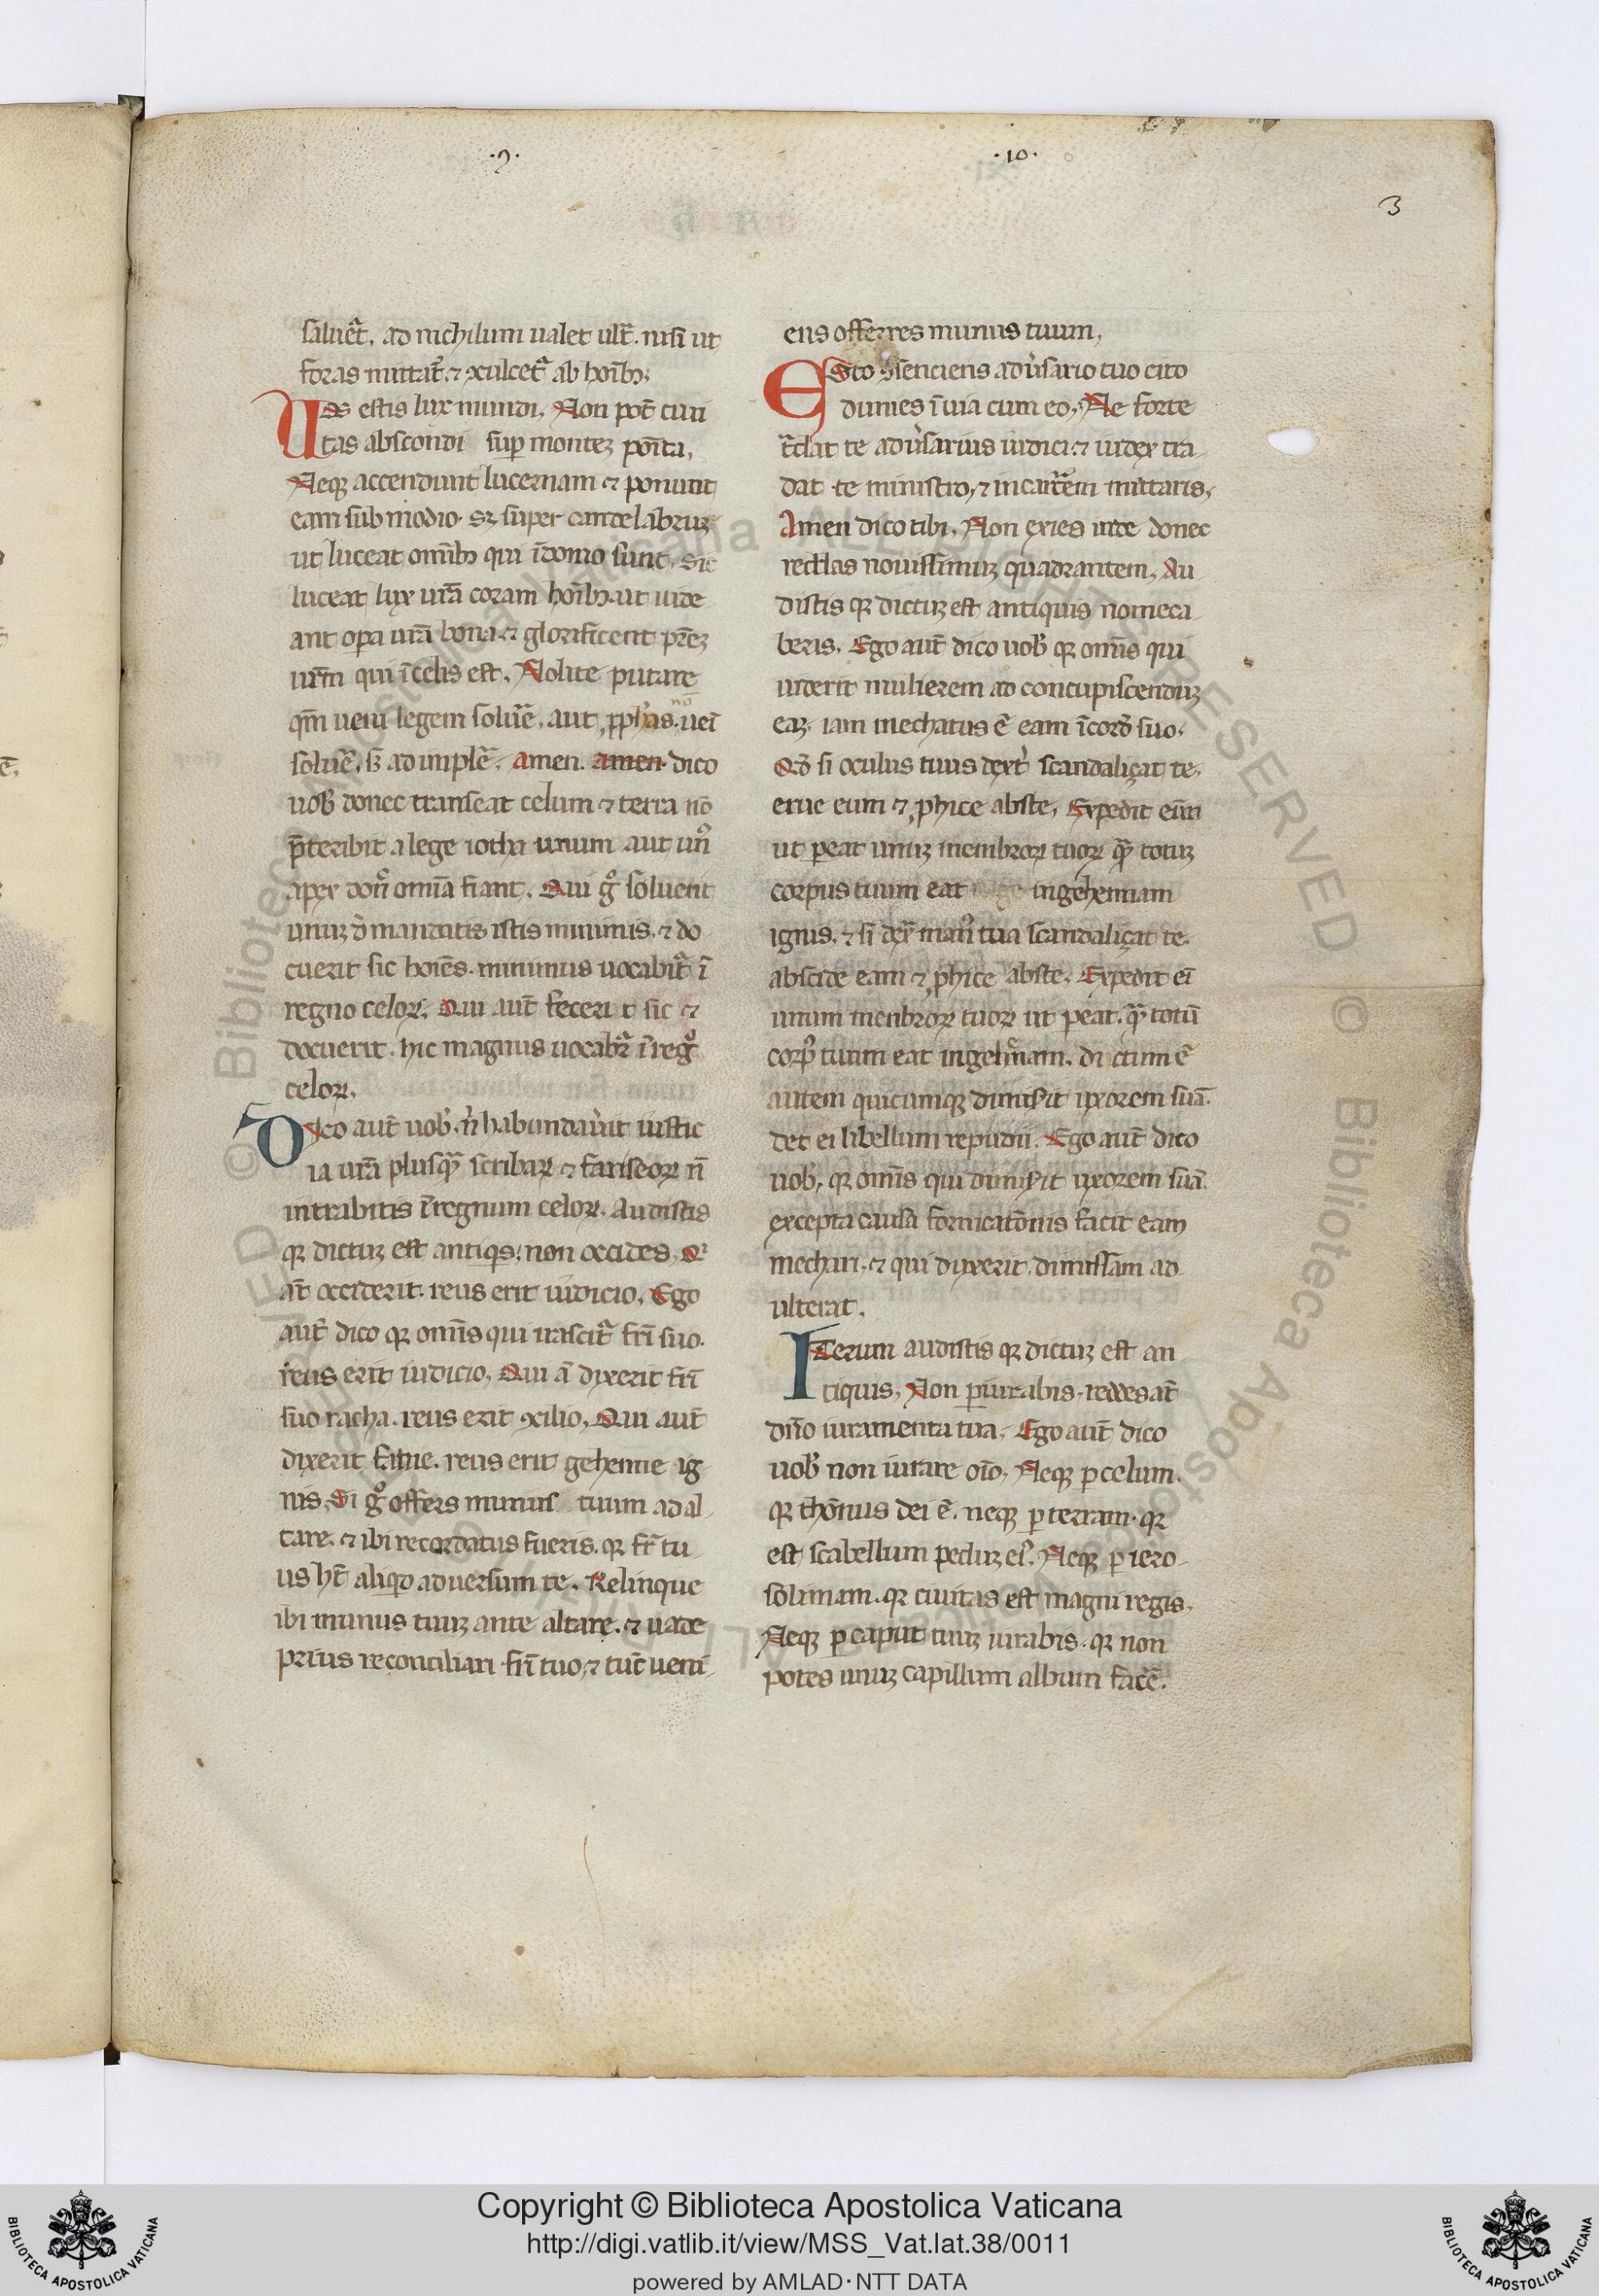 .9.
.10.
3
saluet̃. ad nichilum ualet ult̃. nisi ut
foras mittat᷑. ⁊ ꝯculcet᷑ ab hoĩbꝫ.
Uos estis lux mundi. Non pot̃ ciui
tas abscondi sup̱ montẽ poĩta.
Neqꝫ accendunt lucernam ⁊ ponunt
eam sub modio. sꝫ super candelabruꝫ
ut luceat om̃ibꝫ qui ĩ domo sunt. Sic
luceat lux ur̃a coram hoĩbꝫ. ut uide
ant oꝑa ur̃a bona. ⁊ glorificent pr̃eꝫ
ur̃m qui ĩ celis est. Nolite putare
qm̃ ueni legem soluẽ. aut ꝓphas. nõ ueĩ
soluẽ. sꝫ adimplẽ. Amen. amen dico
uob̃ donec transeat celum ⁊ terra nõ
p̃teribit a lege iotha unum aut un᷒
apex don̉ om̃ia fiant. Qui gͦ soluerit
unuꝫ d̃ mandatis istis minimis. ⁊ do
cuerit sic hoĩes. minimus uocabit᷑ ĩ
regno celoꝝ. Qui aut̃ fecerit sic ⁊
docuerit. hic magnus uocabr̃ ĩ regͦ
celoꝝ.
Dico aut̃ uob̃. n̉ habundau̾it iustic
ia ur̃a plusqᷓ scribaꝝ ⁊ fariseoꝝ ñ
intrabitis ĩ regnum celoꝝ. Audistis
qꝛ dictuꝫ est antiqͥs. non occides. Qͥ
aũt occiderit. reus erit iudicio. Ego
aut̃ dico qꝛ om̃is qui irascit᷑ fr̃i suo.
reus erit iudicio. Qui ã dixerit fr̃i
suo racha. reus erit ꝯsilio. Qui aut̃
dixerit fatue. reus erit gehenne ig
nis. Si gͦ offers munus tuum ad al
tare. ⁊ ibi recordatus fueris. qꝛ fr̃ tu
us ht̃ aliqͥd aduersum te. Relinque
ibi munus tuuꝫ ante altare. ⁊ uade
prius reconciliari fr̃i tuo. ⁊ tũc ueni
ens offerres munus tuum.
Esto ꝯsenciens adu̾sario tuo cito
dum es ĩ uia cum eo. Ne forte
t̃dat te adu̾sarius iudici. ⁊ iudex tra
dat te ministro. ⁊ in carc̃em mittaris.
Amen dico tibi. Non exies inde donec
reddas nouissimuꝫ quadrantem. Au
distis qꝛ dictuꝫ est antiquis no meca
beris. Ego aut̃ dico uob̃ qꝛ om̃is qui
uiderit mulierem ad concupiscenduꝫ
eaꝫ. iam mechatus ẽ eam ĩ cord̃ suo.
Qd̃ si oculus tuus dext̉ scandaliçat te.
erue eum ⁊ ꝓhice abs te. Expedit eĩm
ut ꝑeat unuꝫ membroꝝ tuoꝝ qᷓ totuꝫ
corpus tuum eat in gehennam
ignis. ⁊ si dexᷓ man᷒ tua scandaliçat te.
abscide eam ⁊ ꝓhice abs te. Expedit eĩ
unum menbroꝝ tuoꝝ ut ꝑeat. qᷓ totũ
corp᷒ tuum eat in gehñam. dictum ẽ
autem quicumqꝫ dimisit uxorem suã.
det ei libellum repudii. Ego aut̃ dico
uob̃. qꝛ om̃is qui dimisit uxorem suã.
excepta causa fornicatõnis facit eam
mechari. ⁊ qui duxerit dimissam ad
ulterat.
Iterum audistis qꝛ dictuꝫ est an
tiquis. Non ꝑiurabis. reddes at̃
dn̄o iuramenta tua. Ego aut̃ dico
uob̃ non iurare oĩo. Neqꝫ ꝑ celum.
qꝛ thõnus dei ẽ. neqꝫ ꝑ terram. qꝛ
est scabellum peduꝫ ei᷒. Neqꝫ ꝑ iero
solimam. qꝛ ciuitas est magni regis.
Neqꝫ ꝑ caput tuuꝫ iurabis. qꝛ non
potes unuꝫ capillum album facẽ.
© Biblioteca Apostolica Vaticana ALL RIGHTS RESERVED
Copyright © Biblioteca Apostolica Vaticana
http://digi.vatlib.it/view/MSS_Vat.lat.38/0011
powered by AMLAD·NTT DATA
BIBLIOTECA APOSTOLICA VATICANA
BIBLIOTECA APOSTOLICA VATICANA